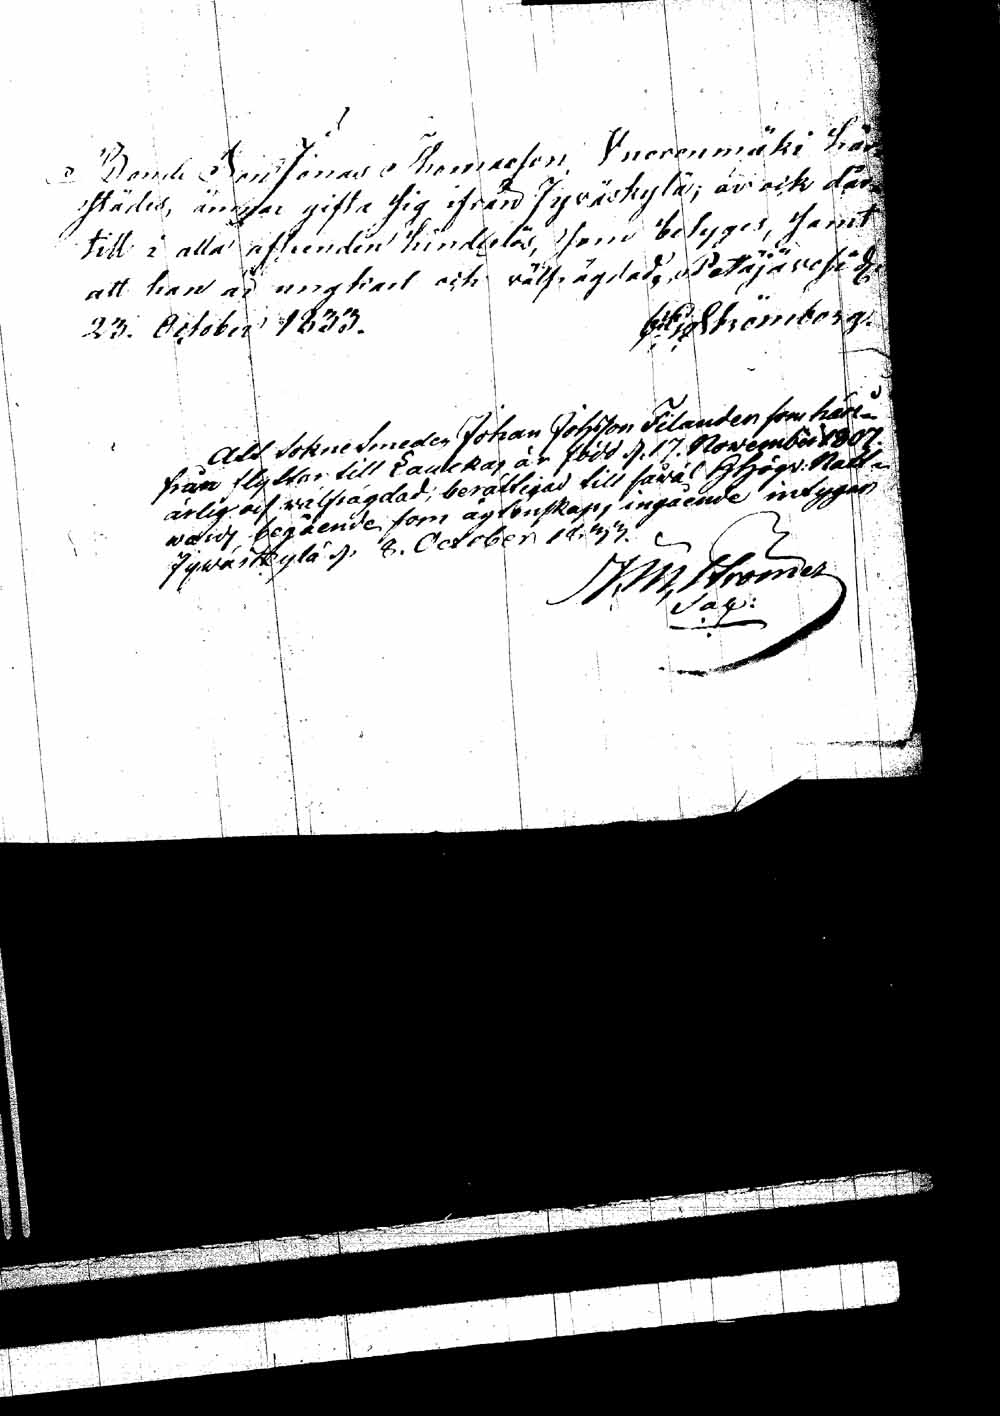 Bonde Son Jonas Thomasson Vuorenmäki här-
städes, ämnar gifta sig ifrån Jyväskylä; är ock där-
till i alla afseenden hinderlös, som betyges, samt
att han är ungkarl och välfrägdad, Petäjävesi d.
23. October 1833. Strömborg.
Att Sokne Smeden Johan Johsson Filanden som här-
från flyttar till Laukas, är född d. 17. November 1807.
ärlig och wälfrägdad, berättigad till såwäl HHögv. Natt-
wards begående som äktenskaps ingående intygar
Jywäskylä d. 8. October 1833.
Stromer
Sac: